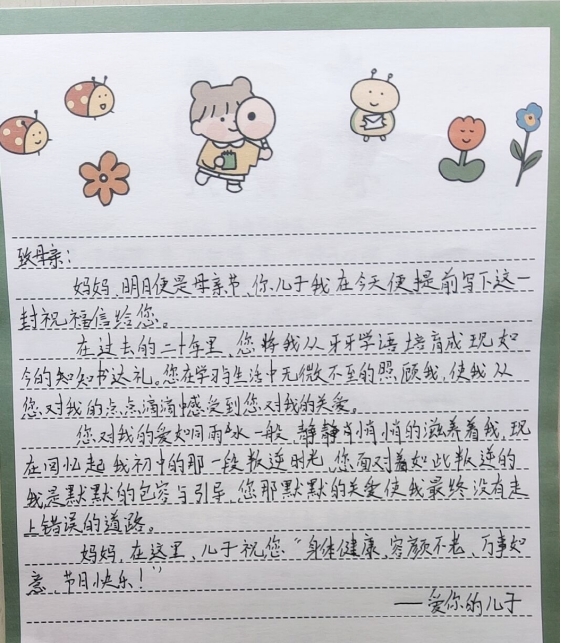 致母亲：
妈妈，明日便是母亲节，你儿子我在今天便提前写下这一
封祝福信给您。
在过去的二十年里，您将我从牙牙学语培育成现如
今的知知书达礼。您在学习与生活中无微不至的照顾我，使我从
您对我的点点滴滴中感受到您对我的关爱。
您对我的爱如同雨水一般，静静悄悄的滋养着我，现
在回忆起我初中的那一段叛逆时光，您面对着如此叛逆的
我是默默的包容与引导，您那默默的关爱使我最终没有走
上错误的道路。
妈妈，在这里，儿子祝您“身体健康、容颜不老、万事如
意、节日快乐！”
——爱你的儿子